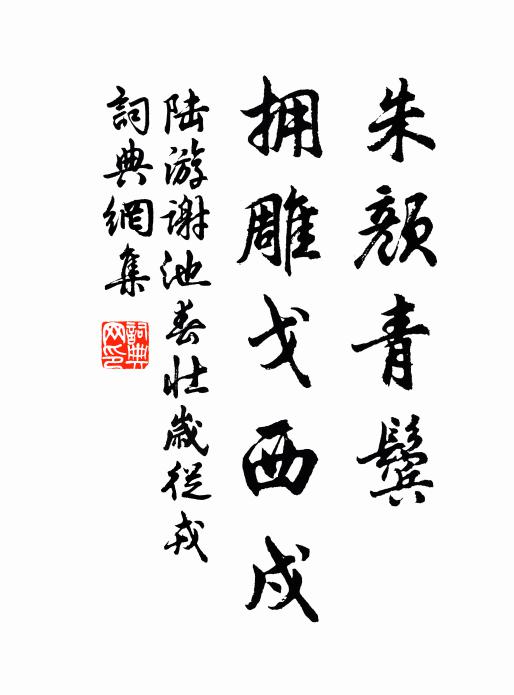 朱颜青鬓
拥雕戈西戍
陆游谢池春壮岁從戎
詞典網集
詞典
网印